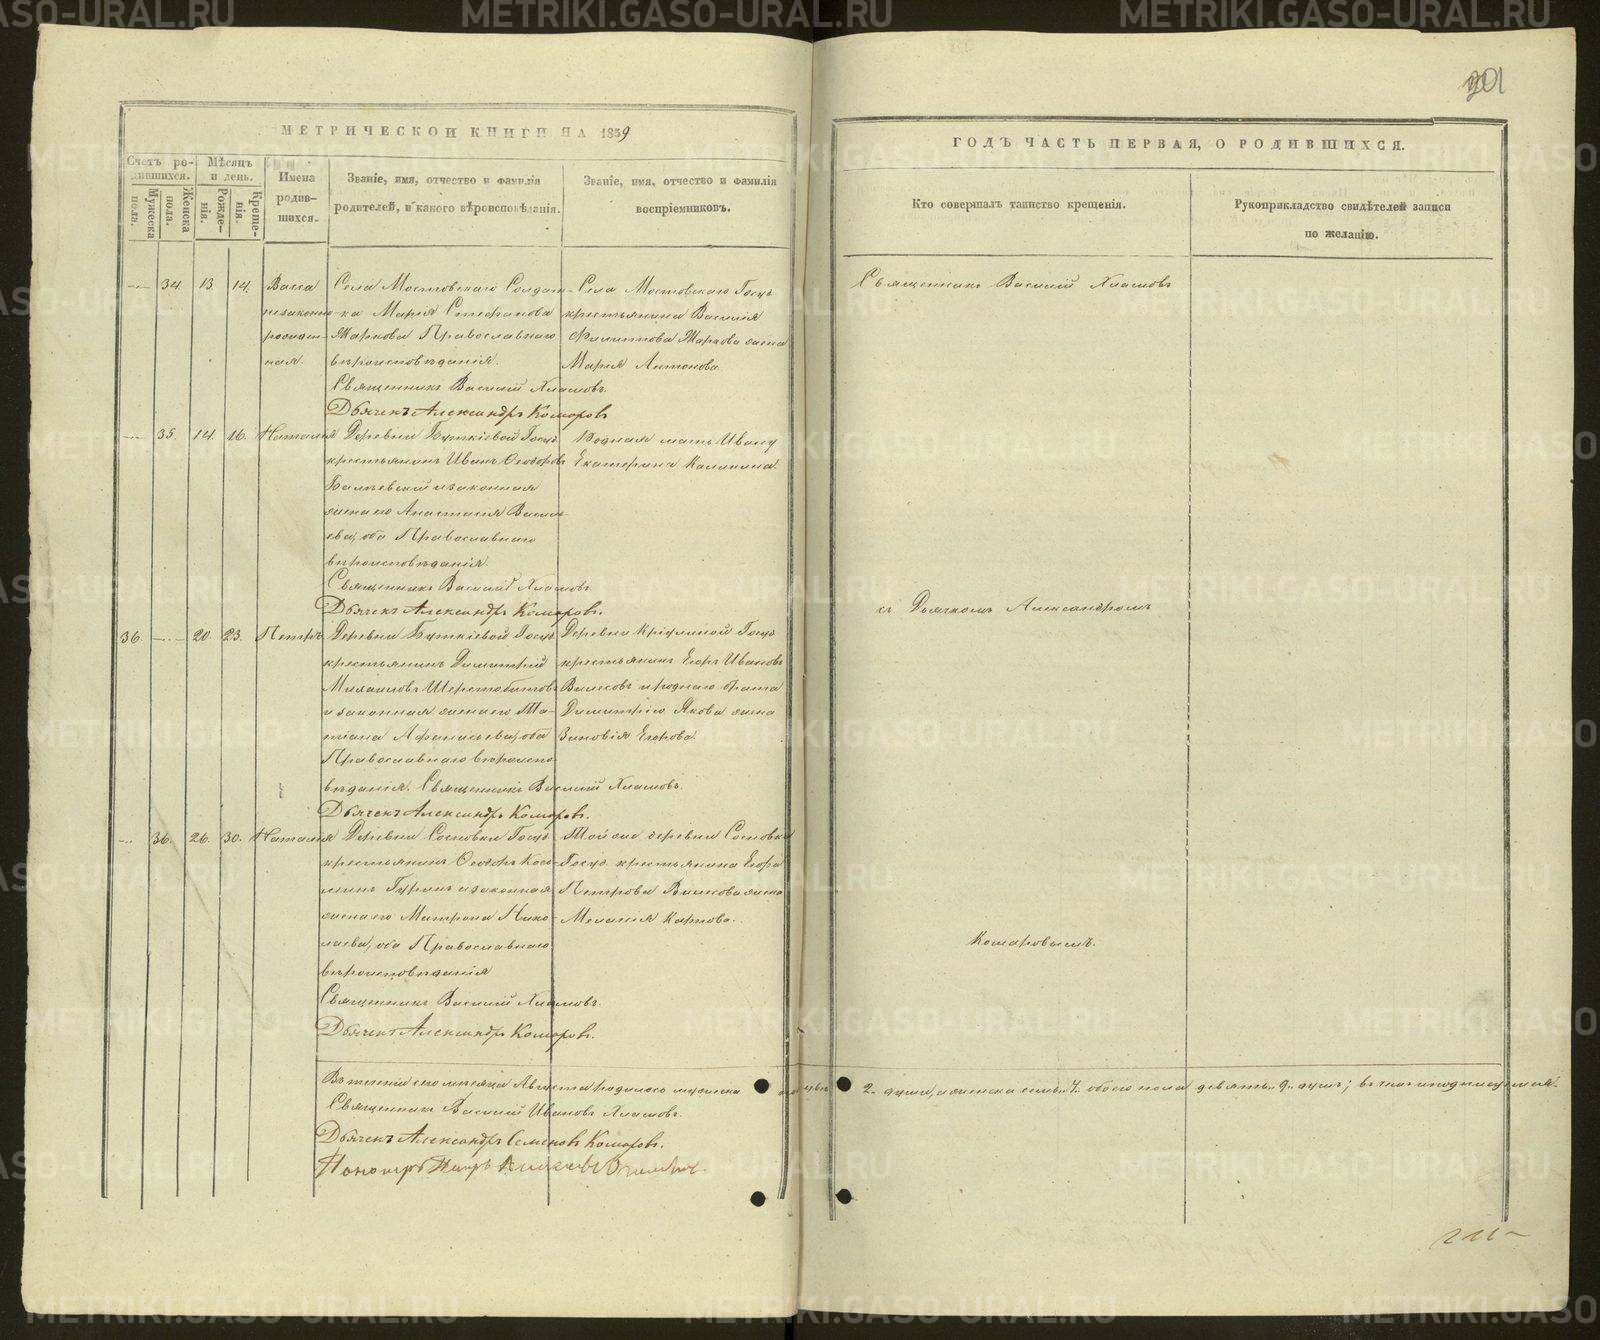 МЕТРИЧЕСКОЙ КНИГИ НА 1859
ГОДЪ ЧАСТЬ ПЕРВАЯ, О РОДИВШИХСЯ.
Счетъ родившихся.
Мужеска пола.
Женска пола.
Мѣсяцъ и день.
Рожденія.
Крещенія.
Имена родившихся.
Званіе, имя, отчество и фамилія
родителей, и какого вѣроисповѣданія.
Званіе, имя, отчество и фамилія
воспріемниковъ.
Кто совершалъ таинство крещенія.
Рукоприкладство свидѣтелей записи
по желанію.
34. 13 14. Васса
незаконно
рожден-
ная
Села Мостовскаго Солдат-
ка Марія Стефанова
Маркова Православнаго
вѣроисповѣданія.
Священникъ Василій Хламовъ.
Дьячекъ Александръ Комаровъ
Села Мостовскаго Госуд
крестьянина Василія
Филиппова Маркова жена
Марія Антонова
Священникъ Василій Хламовъ
35. 14. 16. Наталія
Деревни Буткіевой Госуд
крестьянинъ Иванъ Ѳеодоровъ
и законная
жена его Анастасія Василь-
ева, оба Православнаго
вѣроисповѣданія.
Священникъ Василій Хламовъ
Дьячекъ Александръ Комаровъ.
Родная мать Ивану
Екатерина Калинина.
съ Дьячкомъ Александромъ
36. 20. 23. Петръ
Деревни Буткіевой Госуд
крестьянинъ Димитрій
Михаиловъ Шерстобитовъ
и законная жена его Та-
тіана Афанасьева, оба
Православнаго вѣроиспо-
вѣданія. Священникъ Василій Хламовъ.
Дьячекъ Александръ Комаровъ.
Деревни Госуд
крестьянинъ Егоръ Ивановъ
и роднаго брата
Димитрію Якова жена
Зиновія Егорова.
36. 26. 30. Наталія
Деревни Сосновки Госуд
крестьянинъ Ѳеодоръ Козь-
минъ и законная
жена его Матрона Нико-
лаева, оба Православнаго
вѣроисповѣданія
Священникъ Василій Хламовъ.
Дьячекъ Александръ Комаровъ.
Той же деревни Сосновки
Госуд. крестьянина Егора
Петрова жена
Меланія Карпова.
Комаровымъ.
Въ теченіи сего мѣсяца Августа родилось мужеска
2. души, а женска семь 7. обоего пола девять 9. душъ;
Священникъ Василій Ивановъ Хламовъ.
Дьячекъ Александръ Семеновъ Комаровъ.
Пономарь